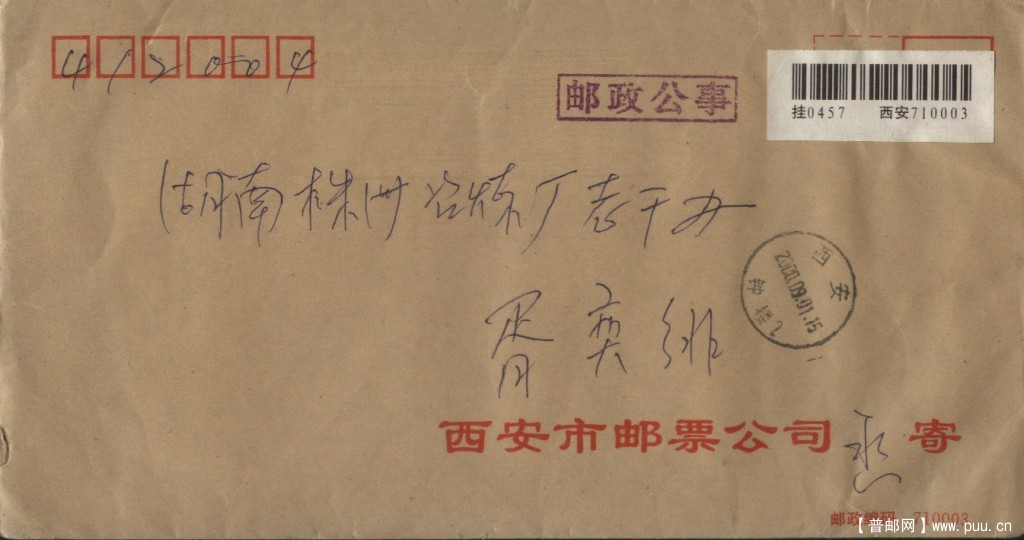 412004
邮政公事
挂0457 西安710003
湖南株州冶炼厂老干办
西安
2000.09.01.15
钟楼
胥奕绯
西安市邮票公司 寄
邮政编码 710003
【普邮网】www.puu.cn